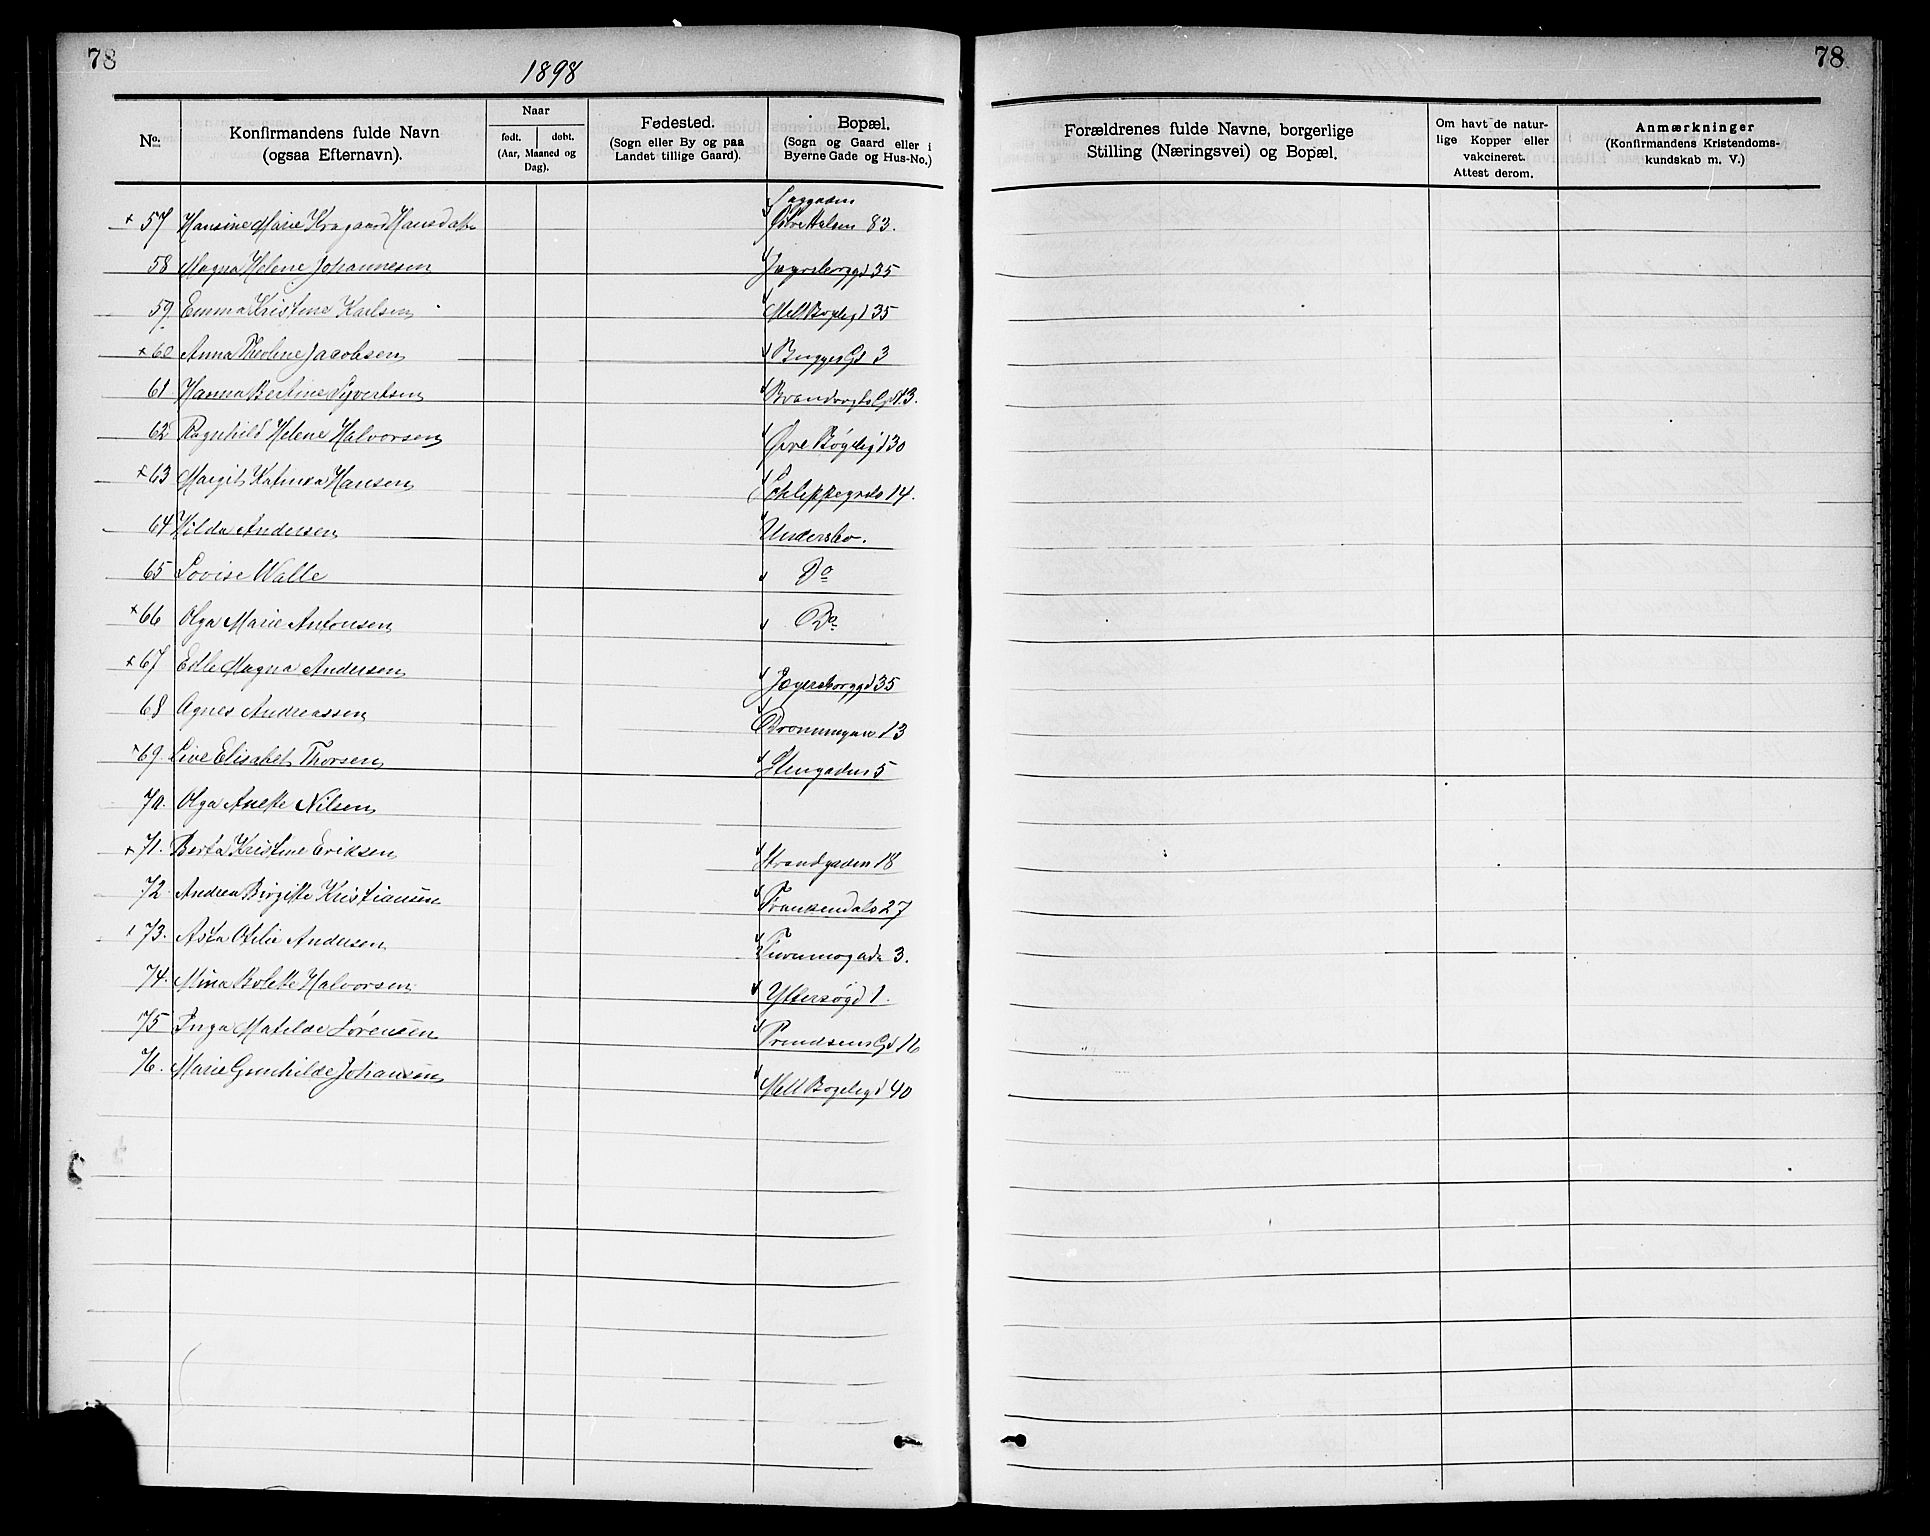 78
1898
No. Konfirmandens fulde Navn (ogsaa Efternavn). Naar født. døbt. (Aar, Maaned og Dag). Fødested. (Sogn eller By og paa Landet tillige Gaard). Bopæl. (Sogn og Gaard eller i Byerne Gade og Hus-No.)
× 57 Hansine Marie Kragaard Hansdatter 83.
58 Magna Helene Johannesen 35
59 Emma Kristine Karlsen 35
× 60 Anna Theoline Jacobsen Brygges Gd 3
61 Hanna Bertine Syvertsen 13.
62 Ragnhild Helene Halvorsen Øvre Bøgeligd 30
× 63 Margit Katinka Hansen Schleppegrels 14.
64 Hilda Andersen Underslvo.
65 Lovise Walle Do
× 66 Olga Marie Antonsen Do
× 67 Edle Magna Andersen Jegersborggd 35
68 Agnes Andreassen Dronningen 13
× 69. Live Elisabet Thorsen Stengaden 5
70. Olga Anette Nilsen
× 71. Berta Kristine Eriksen Strandgaden 18
72 Andrea Birgitte Kristiansen Frankendals 27
× 73. Asta Otilie Andersen 3.
74. Mina Bolette Halvorsen Yttersøgd 1.
75 Inga Matilde Sørensen Trondsens Gd 16
76. Marie Gunhilde Johansen Mell Bøgeligd 40
78
Forældrenes fulde Navne, borgerlige Stilling (Næringsvei) og Bopæl. Om havt de naturlige Kopper eller vakcineret. Attest derom. Anmærkninger (Konfirmandens Kristendomskundskab m. V.)